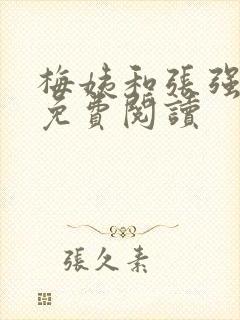 梅姨和張强
免費閱讀
張久素